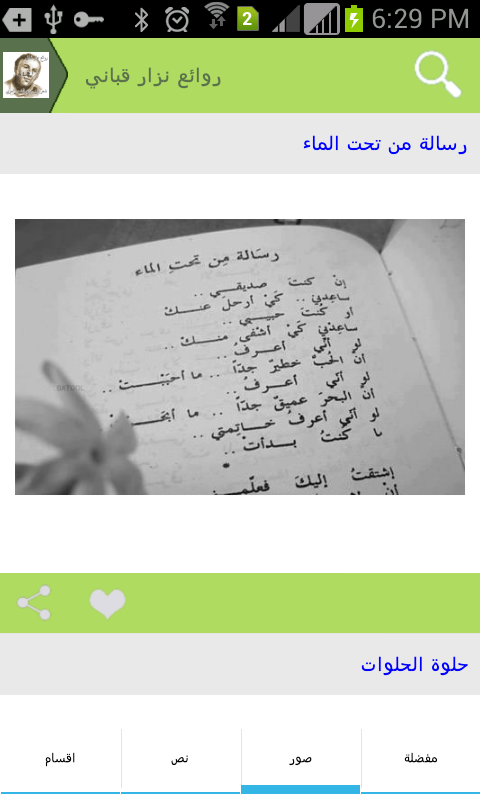 2
6:29 PM
روائع نزار قباني
رسالة من تحت الماء
رسَالة مِن تحتِ الماء
إنْ كنتَ صديقي ..
ساعِدني .. كَيْ أرحلَ عنكْ
أو كنتَ حبيبي ..
ساعِدْني كَيْ أشفى منكْ ..
لو أنّي أعرفُ ..
أنّ الحُبَّ خطيرٌ جدّاً .. ما أحبَبْتْ ..
لو أنّي أعرفُ ..
أنّ البحرَ عميقٌ جدّاً .. ما أبحَرْتْ ..
لو أنّي أعرفُ خاتِمتي ..
ما كنتُ بدأتْ ..
إشتقتُ إليكَ فعلّمني
حلوة الحلوات
اقسام
نص
صور
مفضلة